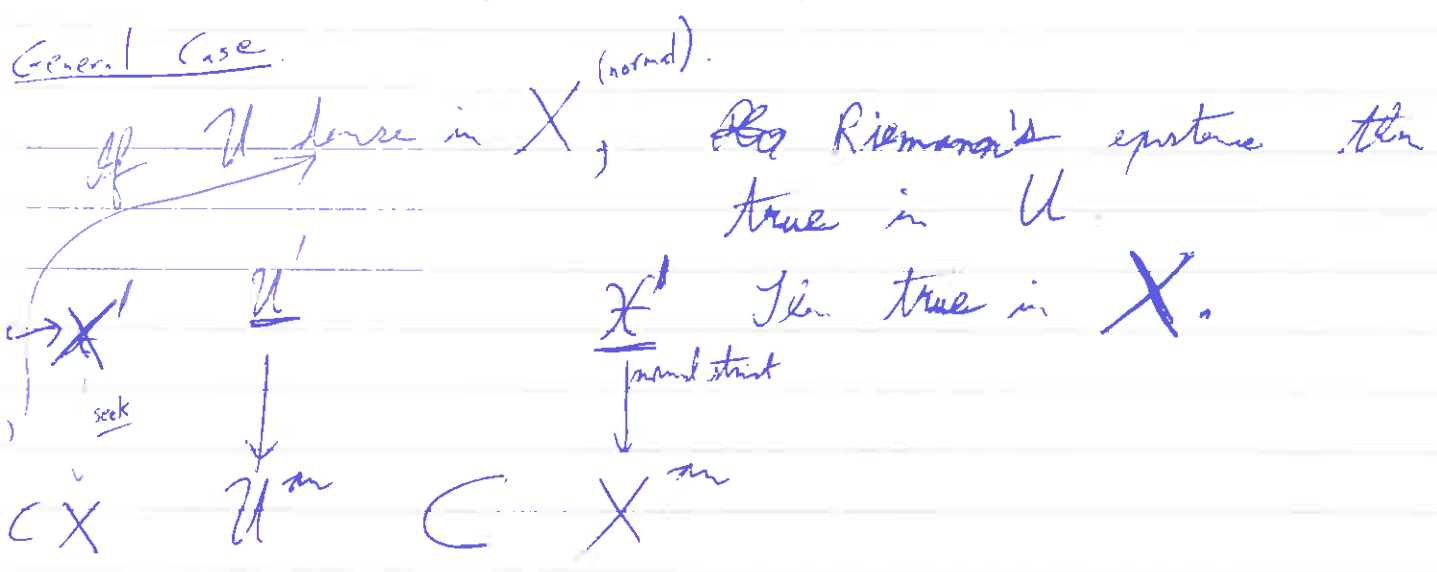 General Case.
(normal).
If U dense in X, Riemann's existence then
true in U
X' U' X' Then true in X.
normal
seek
⊂ X U^an ⊂ X^an